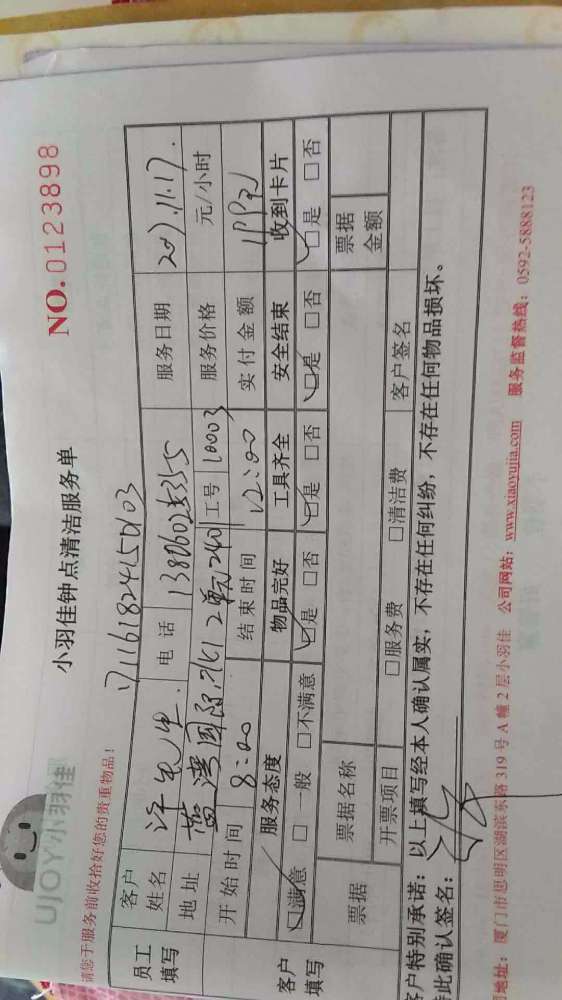 UJOY小羽佳
小羽佳钟点清洁服务单
NO.0123898
请您于服务前收拾好您的贵重物品！
171161824150103
员工填写
客户姓名 先生 电话 服务日期 11.17.
地址 蓝湾国际 2单元 工号 10003 服务价格 元/小时
开始时间 8:00 结束时间 12:00 实付金额
客户填写
服务态度 物品完好 工具齐全 安全结束 收到卡片
□满意 □一般 □不满意 □是 □否 □是 □否 □是 □否 □是 □否
票据 票据名称 票据金额
开票项目 □服务费 □清洁费 客户签名
客户特别承诺：以上填写经本人确认属实，不存在任何纠纷，不存在任何物品损坏。
特此确认签名：
地址：厦门市思明区湖滨东路319号A幢2层小羽佳 公司网站：www.xiaoyujia.com 服务监督热线：0592-5888123